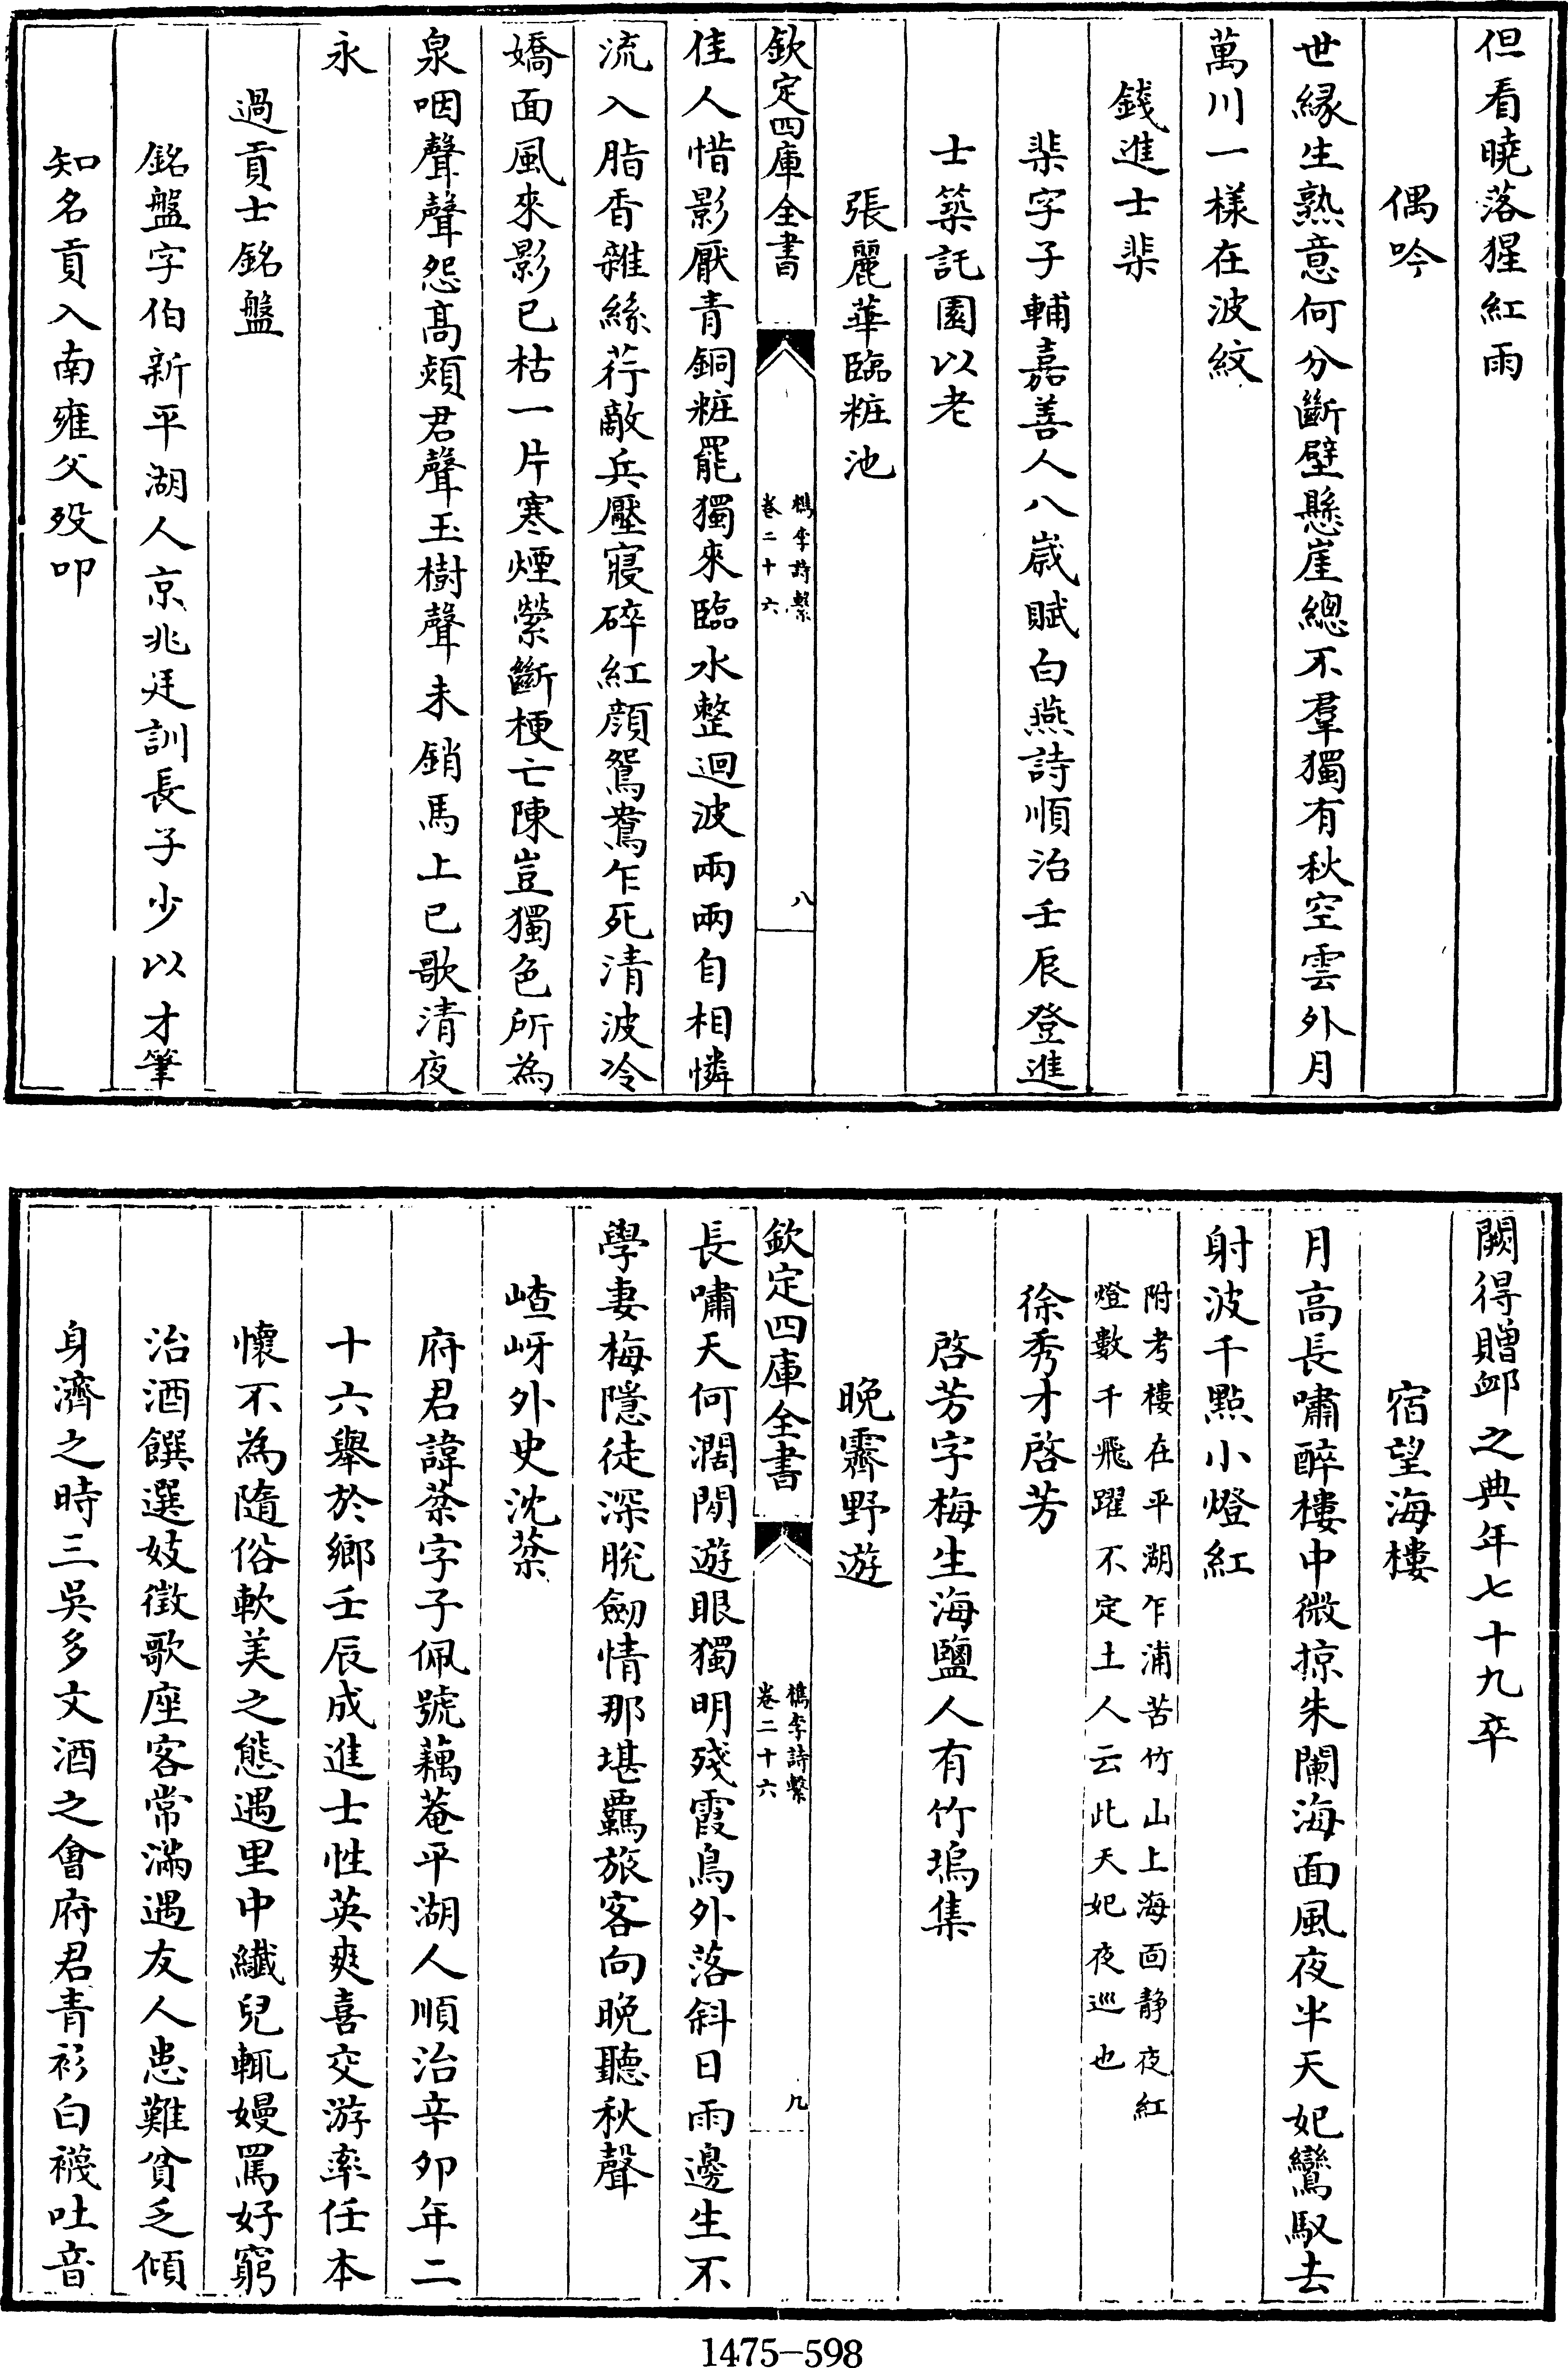 但看曉落猩紅雨
偶吟
世縁生熟意何分斷壁懸崖總不羣獨有秋空雲外月
萬川一樣在波紋
錢進士棐
棐字子輔嘉善人八嵗賦白燕詩順治壬辰登進
士築託園以老
張麗華臨粧池
欽定四庫全書
檇李詩繫
卷二十六
八
佳人惜影厭青銅粧罷獨來臨水整迴波兩兩自相憐
流入脂香雜絲荇敵兵壓寢碎紅顔鴛鴦乍死清波冷
嬌面風來影已枯一片寒煙縈斷梗亡陳豈獨色所為
泉咽聲聲怨髙熲君聲玉樹聲未銷馬上已歌清夜
永
過貢士銘盤
銘盤字伯新平湖人京兆廷訓長子少以才筆
知名貢入南雍父歿叩
闕得贈䘏之典年七十九卒
宿望海樓
月高長嘯醉樓中微掠朱闌海面風夜半天妃鸞馭去
射波千點小燈紅
附考樓在平湖乍浦苦竹山上海靣静夜紅
燈數千飛躍不定土人云此天妃夜巡也
徐秀才啓芳
啓芳字梅生海鹽人有竹塢集
晚霽野遊
欽定四庫全書
檇李詩繫
卷二十六
九
長嘯天何濶閒遊眼獨明殘霞鳥外落斜日雨邊生不
學妻梅隱徒深脫劒情那堪覊旅客向晚聽秋聲
嵖岈外史沈棻
府君諱棻字子佩號藕菴平湖人順治辛卯年二
十六舉於鄉壬辰成進士性英爽喜交游率任本
懷不為隨俗軟美之態遇里中纖兒輒嫚罵好窮
治酒饌選妓徵歌座客常滿遇友人患難貧乏傾
身濟之時三吳多文酒之會府君青衫白襪吐音
1475-598